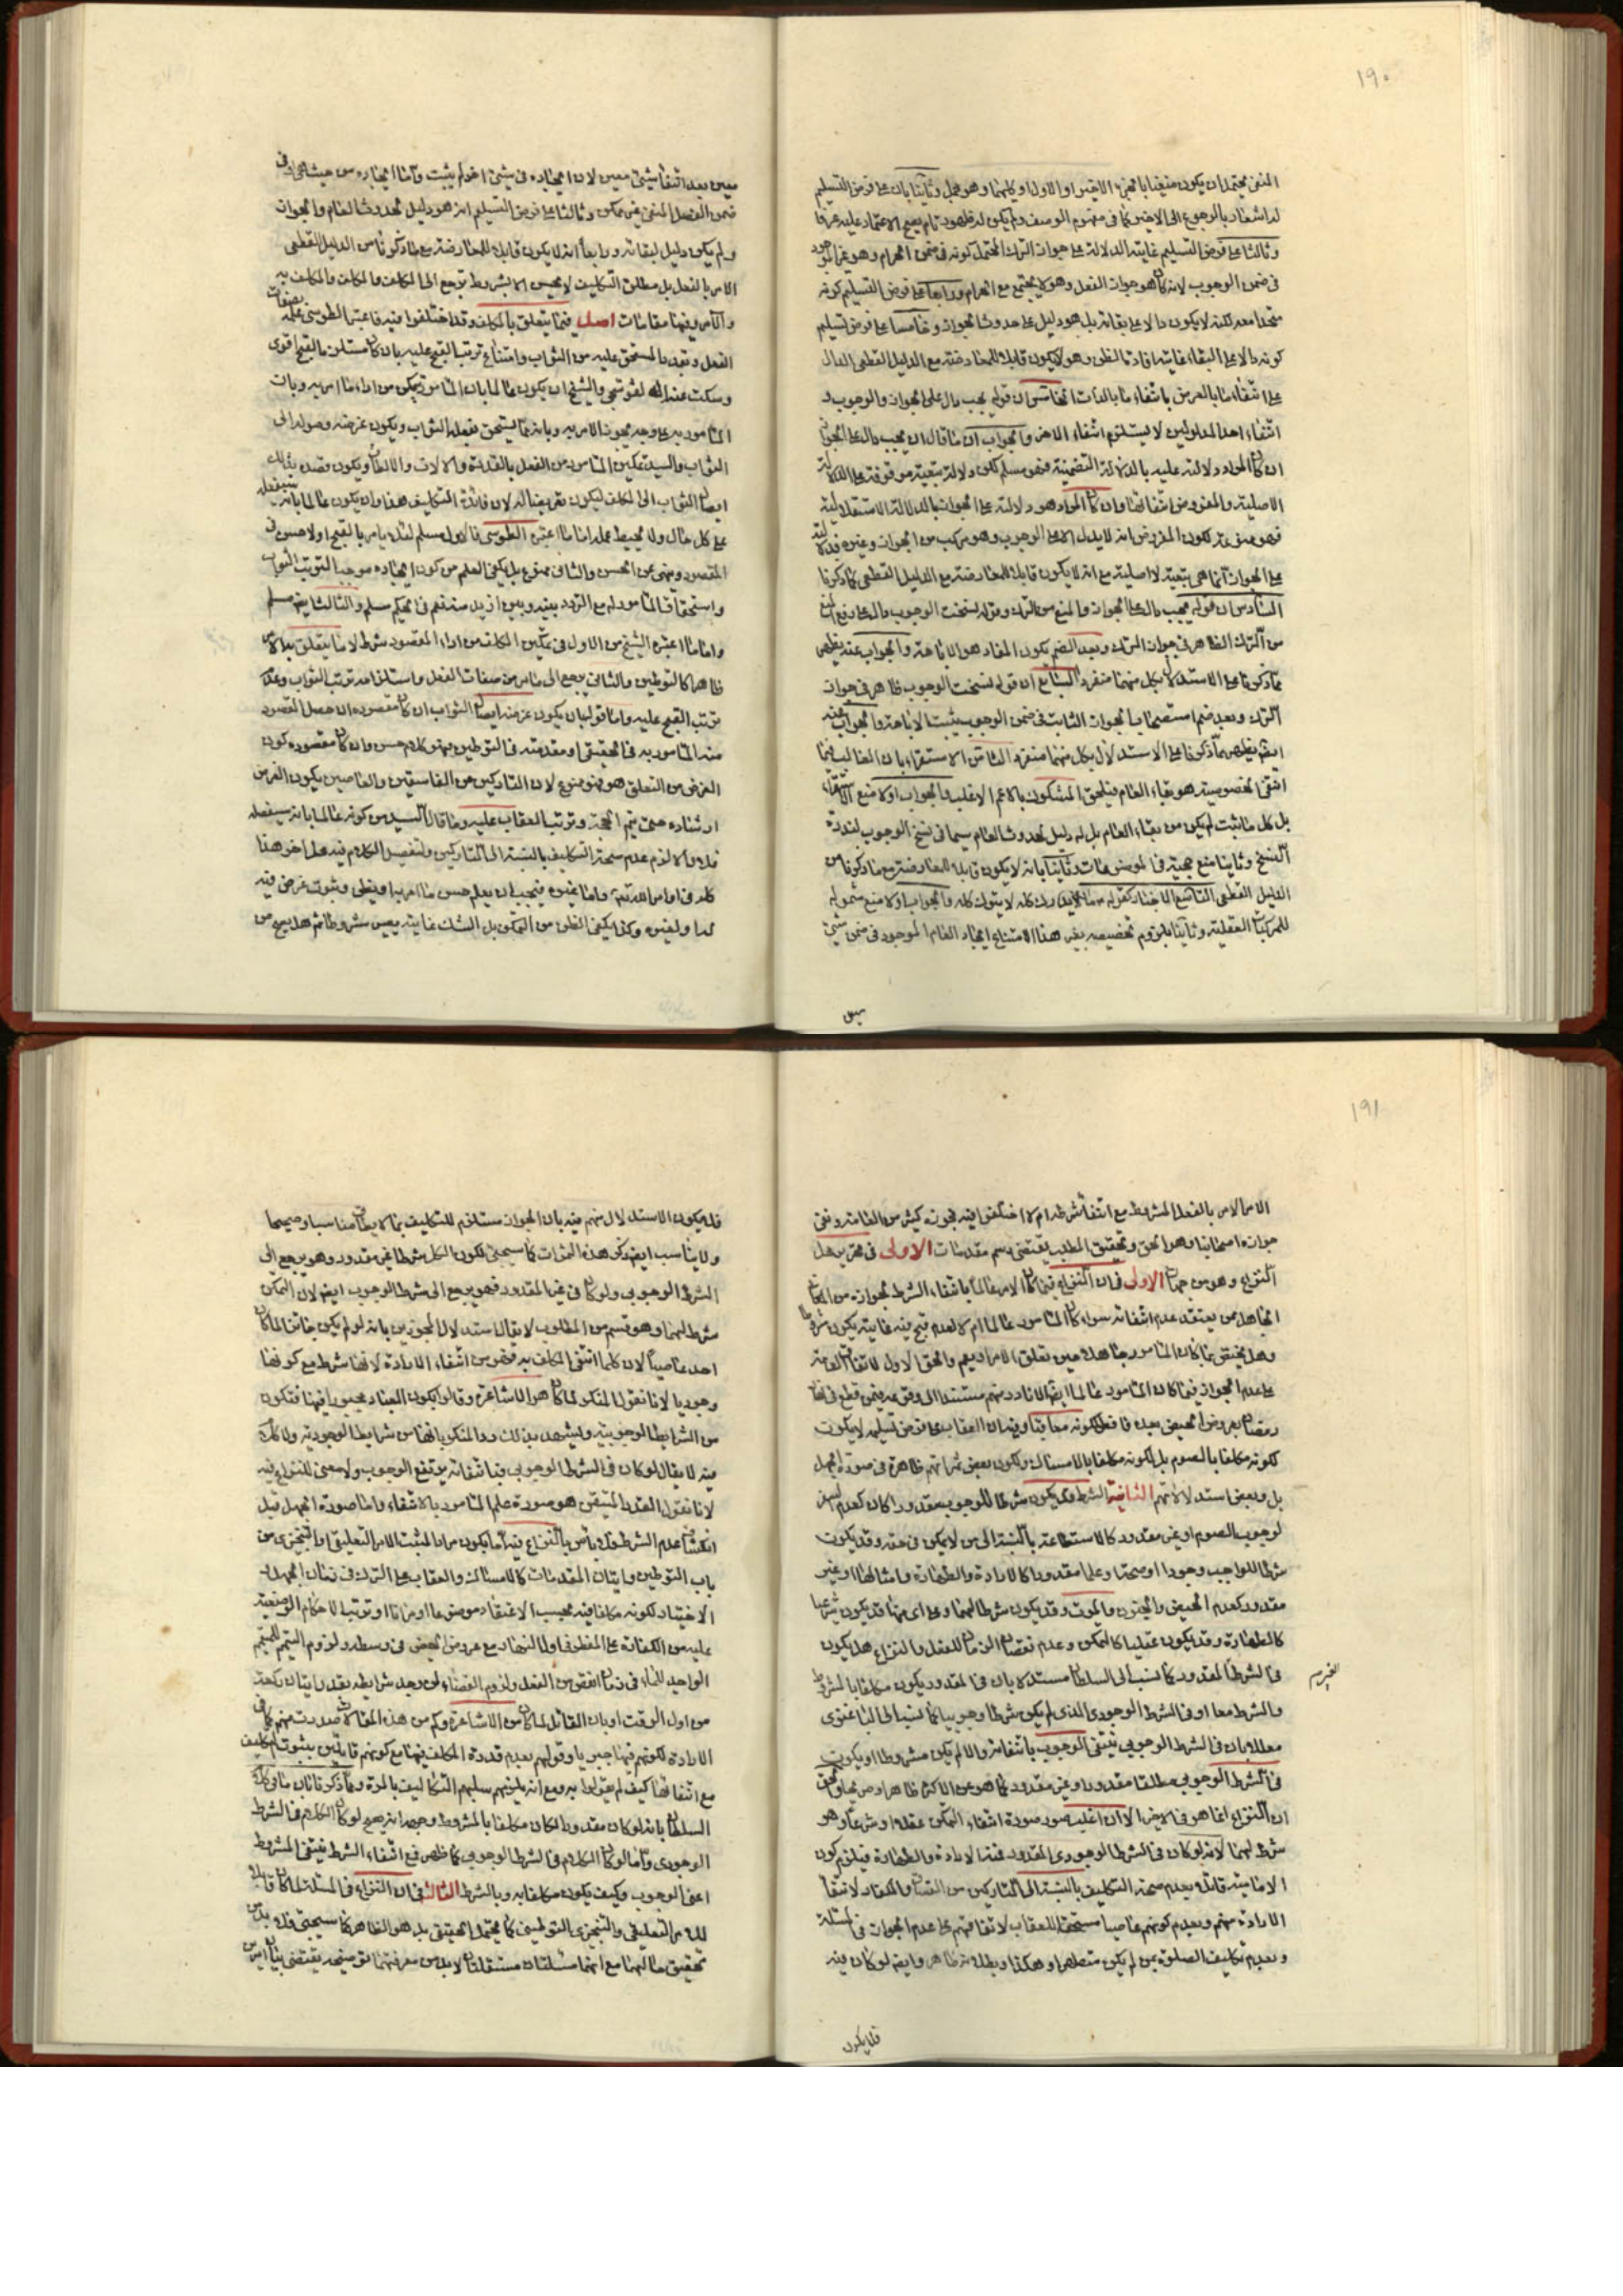 ١٩٠
المنفى يحتمل ان يكون منفيا بالجزء الاخير او الاول او كليهما وهو مجمل وثانيا بان على فرض التسليم
له اشعار بالرجوع الى الاخير كما فى مفهوم الوصف ولم يكون له ظهور تام يصح الاعتماد عليه عرفا
وثالثا على فرض التسليم غايته الدلالة على جواز الترك المحتمل كونه فى ضمن الحرام وهو غير الموجود
فى ضمن الوجوب لانه كان هو جواز الفعل وهو لا يجتمع مع الحرام ورابعا على فرض التسليم كونه
متحدا معه لكنه لا يكون دالا على بقائه بل هو دليل على حدوث الجواز وخامسا على فرض تسليم
كونه دالا على البقاء غايته افادة الظن وهو لا يكون قابلا للمعارضة مع الدليل القطعى الدال
على انتفاء ما بالعرض بانتفاء ما بالذات الخامس ان قوله يجب دال على الجواز والوجوب و
انتفاء احد المدلولين لا يستلزم انتفاء الاخر والجواب ان ما قال ان يجب دال على الجواز
ان كان المراد دلالته عليه بالدلالة التضمنية فهو مسلم لكن دلالة تبعية موقوفة على الدلالة
الاصلية والمفروض انتفائها وان كان المراد هو دلالته على الجواز بالدلالة الاستقلالية
فهو ممنوع لكون المفروض انه لا يدل الا على الوجوب وهو مركب من الجواز وغيره فدلالته
على الجواز انما هى تبعية لا اصلية مع انه لا يكون قابلا للمعارضة مع الدليل القطعى كما ذكرنا
السادس ان قوله يجب دال على الجواز والمنع من الترك وقوله نسخت الوجوب دال على رفع المنع
من الترك الظاهر فى جواز الترك وبعد الضم يكون المفاد هو الاباحة والجواب عنه يظهر
مما ذكرنا على الاستدلال بكل منهما منفردا السابع ان قوله نسخت الوجوب ظاهر فى جواز
الترك وبعد ضم استصحاب الجواز الثابت فى ضمن الوجوب يثبت الاباحة والجواب عنه
ايضا يظهر مما ذكرنا على الاستدلال بكل منهما منفردا الثامن الاستقراء بان الغالب فيما
انتفى الخصوصية هو بقاء العام فيلحق المشكوك بالاعم الاغلب والجواب اولا منع الاستقراء
بل كل ما ثبت لم يكن من بقاء العام بل له دليل لحدوث العام سيما فى نسخ الوجوب لندرة
النسخ وثانيا منع حجيته فى الموضوعات وثالثا بانه لا يكون قابلا للمعارضة مع ما ذكرنا من
الدليل القطعى التاسع الاخبار كقوله ما لا يدرك كله لا يترك كله والجواب اولا منع شموله
للمركبات العقلية وثانيا بلزوم تخصيصه بغير هذا لامتناع ايجاد العام الموجود فى ضمن شىء
معين بعد انتفاء شىء معين لان ايجاده فى شىء اخر لم يثبت واما ايجاده من حيث انه فى
ضمن الفصل المنفى غير ممكن وثالثا على فرض التسليم انه هو دليل لحدوث العام والجواز
ولم يكن دليل لبقائه ورابعا انه لا يكون قابلا للمعارضة مع ما ذكرنا من الدليل القطعى
الامر بالفعل بل مطلق التكليف لا يحسن الا بشروط يرجع الى المكلف والمكلف والمكلف به
والامر وفيها مقامات اصل فيما يتعلق بالمكلف وقد اختلفوا فيه فاعتبر الطوسى علمه بصفات
الفعل وبقدر المستحق عليه من الثواب وامتناع ترتب القبح عليه بان كان مستلزما لقبح اقوى
وسكت عنه القوشجى والشيخ ان يكون عالما بان المامور يتمكن من اداء ما امر به وبان
المامور به على وجه يجوز الامر به وبانه مما يستحق بفعله الثواب ويكون غرضه وصوله الى
الثواب والسيد تمكين المامور من الفعل بالقدرة والالات والالطاف ويكون قصده بذلك
ايصال الثواب الى المكلف ليكون تعريضا له لان فائدة التكليف هذا وان يكون عالما بانه سيفعله
على كل حال ولا يحيط عمله اما ما اعتبره الطوسى فالاول مسلم لئلا يامر بالقبيح او لا حسن فى
المقصود ونهى عن الحسن والثانى ممنوع بل يكفى العلم من كون ايجاده موجبا لترتب الثواب
واستحقاق المامور له مع التردد بينه وبين ازيد منه نعم فى الحكيم مسلم والثالث ايضا مسلم
واما ما اعتبره الشيخ من الاول فى تمكين المكلف من اداء المقصود شرط لا ما يتعلق به الامر
ظاهرا كالتوطين والثانى يرجع الى ما مر من صفات الفعل واستلزامه ترتب الثواب وعدم
ترتب القبح عليه واما قوله بان يكون غرضه ايصال الثواب ان كان مقصوده ان حصل المقصود
منه المامور به فى الحقيقى او مقدمته فى التوطين فهو كلام حسن وان كان مقصوده كون
الغرض من التعلق هو فهو ممنوع لان التاركين من الفاسقين والعاصين يكون الغرض
ارشاده حتى يتم الحجة وترتب العقاب عليه وما قال السيد من كونه عالما بانه سيفعله
فلا والا لزم عدم صحة التكليف بالنسبة الى التاركين وتفصيل الكلام فيه محل اخر هذا
كله فى اوامر الله تعالى واما غيره فيجب ان يعلم حسن ما امر به او يظن وثبوت غرض فيه
له او لغيره وكذا يكفى الظن من التمكن بل الشك غايته يصير مشروطا ثم هل يصح من
يصح
١٩١
الامر الامر بالفعل المشروط مع انتفاء شرطه ام لا اختلفوا فيه فجوزه كثير من العامة ونفى
جوازه اصحابنا وهو الحق وتحقيق المطلب يقتضى رسم مقدمات الاولى فى تحرير محل
النزاع وهو من جهات الاولى فى ان النزاع فيما كان الامر عالما بانتفاء الشرط لجوازه من الجاهل
الجاهل ممن يعتقد عدم انتفائه سواء كان المامور عالما ام لا لعدم قبح فيه غايته يكون مشروطا
وهل يختص بما كان المامور جاهلا حين تعلق الامر او يعم والحق الاول لاتفاق العامة
على عدم الجواز فيما كان المامور عالما ايضا الا نادر منهم مستندا الى وقوعه فيمن قطع فى نهار
رمضان بعروض الحيض بعده فافطر لكونه معاقبا وفيه ان العقاب على فرض تسليمه لا يكون
لكونه مكلفا بالصوم بل لكونه مكلفا بالامساك ولكون بعض ثمراتهم ظاهرة فى صورة الجهل
بل وبعض استدلالاتهم الثانية الشرط قد يكون شرطا للوجوب مقدورا كان كعدم السفر
لوجوب الصوم او غير مقدور كالاستطاعة بالنسبة الى من لا يكون فى حقه وقد يكون
شرطا للواجب وجودا او صحة وعلما مقدورا كالارادة والطهارة وامثالها او غير
مقدور كعدم الحيض والجنون والموت وقد يكون شرطا لهما وعلى اى منها قد يكون شرعيا
كالطهارة وقد يكون عقليا كالتمكن وعدم نقصان الزمان للفعل والنزاع هل يكون
فى الشرط المقدور كما نسب الى السلطان مستدلا بان فى المقدور يكون مكلفا بالشرط
والشرط معا او فى الشرط الوجودى الذى لم يكن شرطا وجوبيا كما نسب الى الباغنوى
معللا بان فى الشرط الوجوبى ينتفى الوجوب بانتفائه والا لم يكن مشروطا او يكون
فى الشرط الوجوبى مطلقا مقدورا او غير مقدور كما هو من الاكثر ظاهرا وصريحا والحق
ان النزاع انما هو فى الاخير الا ان اغلب صور صورة انتفاء التمكن عقلا او شرعا وهو
شرط لهما لانه لو كان فى الشرط الوجودى المقدور فمنه الارادة والطهارة فيلزم كون
الامامية قائلا بعدم صحة التكليف بالنسبة الى التاركين من الفساق والكفار لانتفاء
الارادة منهم وبعدم كونهم عاصيا مستحقا للعقاب لاتفاقهم على عدم الجواز فى المسئلة
وبعدم تكليف الصلوة بمن لم يكن متطهرا وهكذا وبطلانه ظاهر وايضا لو كان فيه
فلا يكون
فلا يكون الاستدلال منهم فيه بان الجواز مستلزم للتكليف بما لا يطاق مناسبا وصحيحا
ولا يناسب ايضا ذكر هذه الثمرات كما سيجىء لكون الكل شرطا غير مقدور وهو يرجع الى
الشرط الوجوبى ولو كان فى غير المقدور فهو يرجع الى شرط الوجوب ايضا لان التمكن
شرط لهما وهو قسم من المطلوب لا يقال استدلال المجوزين بانه لو لم يكن جائزا لما كان
احد عاصيا لان كلما انتفى المكلف به فهو من انتفاء الارادة لانها شرط مع كونها
وجوديا لانا نقول المنكر لما كان هو الاشاعرة وقالوا بكون العباد مجبورا فيها فتكون
من الشرايط الوجوبية ويشهد بذلك رد المنكر بانها من شرايط الوجودية ولا كلام
فيه لا يقال لو كان فى الشرط الوجوبى فبانتفائه يرتفع الوجوب ولا معنى للنزاع فيه
لانا نقول القدر المتيقن هو صورة علم المامور بالانتفاء واما صورة الجهل قبل
انكشاف عدم الشرط فلا باس بالنزاع فيه اما يكون مراد المثبت الامر التعليقى او التنجيزى من
باب التوطين واتيان المقدمات كالامساك والعقاب على الترك فى زمان الجهل و
الاختيار لكونه مكلفا فيه بحسب الاعتقاد موضوعا او زمانا او ترتب الاحكام الوضعية
عليه من الكفارة على المفطر فى اول النهار مع عروض الحيض فى وسطه ولزوم التيمم للمتيمم
الواجد للماء فى زمان انقص من الفعل ولزوم القضاء لمن وجد شرايطه بقدر اتيان ركعة
من اول الوقت او بان القائل لما كان من الاشاعرة وكم من هذه المقالات صدرت منهم كما فى
الارادة لكونهم فيها جبريا وقولهم بعدم قدرة المكلف فيها مع كونهم قائلين بثبوت التكليف
مع انتفائها كيف لم يقولوا به ومع انه يلزمهم سلبهم التكاليف بالمرة ومما ذكرنا بان ما فى كلام
السلطان بانه لو كان مقدورا لكان مكلفا بالمشروط وجه انه يصح لو كان الكلام فى الشرط
الوجودى واما لو كان الكلام فى الشرط الوجوبى كما ظهر فمع انتفاء الشرط ينتفى المشروط
اعنى الوجوب وكيف يكون مكلفا به وبالشرط الثالث فى ان النزاع فى المسئلة لما كان قابلا
للامر التعليقى والتنجيزى التوطينى كما يحتمل الحقيقى بل هو الظاهر كما سيجىء فلا بد من
تحقيق حالهما مع انهما مسئلتان مستقلتان لا بد من معرفتهما توضيحه يقتضى بيان امرين